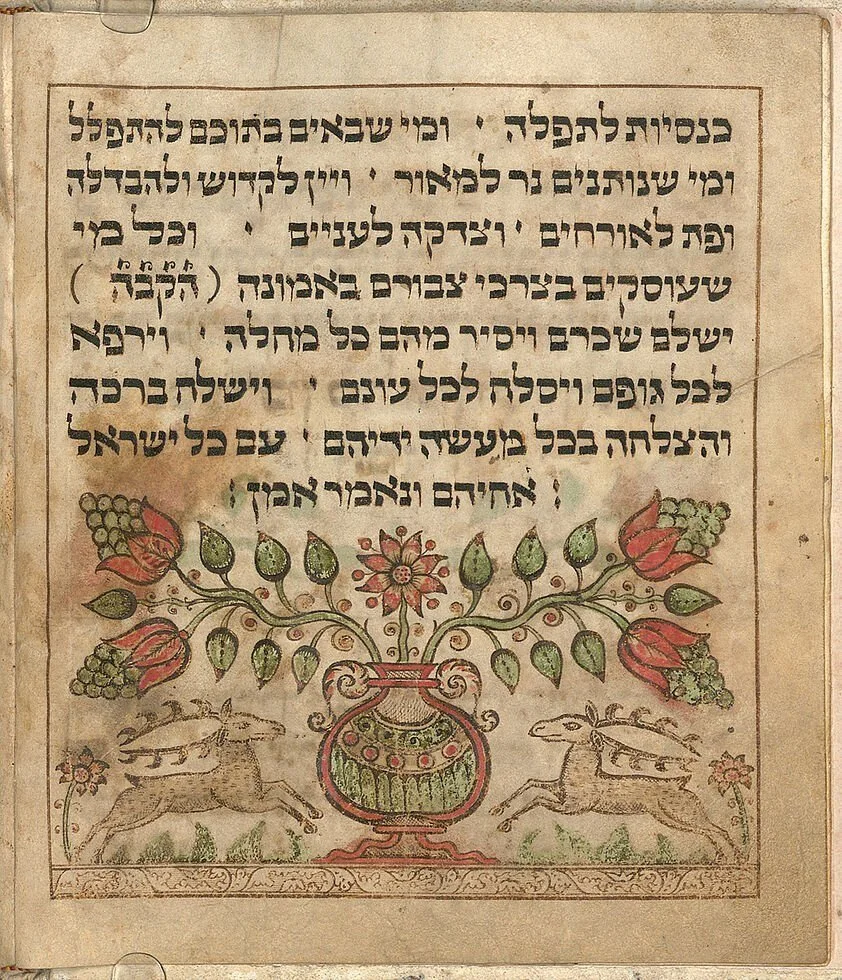 כנסיות לתפלה · ומי שבאים בתוכם להתפלל
ומי שנותנים נר למאור · ויין לקדוש ולהבדלה
ופת לאורחים · וצדקה לעניים · וכל מי
שעוסקים בצרכי צבורם באמונה (הקבה)
ישלם שכרם ויסיר מהם כל מחלה · וירפא
לכל גופם ויסלח לכל עונם · וישלח ברכה
והצלחה בכל מעשה ידיהם · עם כל ישראל
: אחיהם ונאמר אמן :